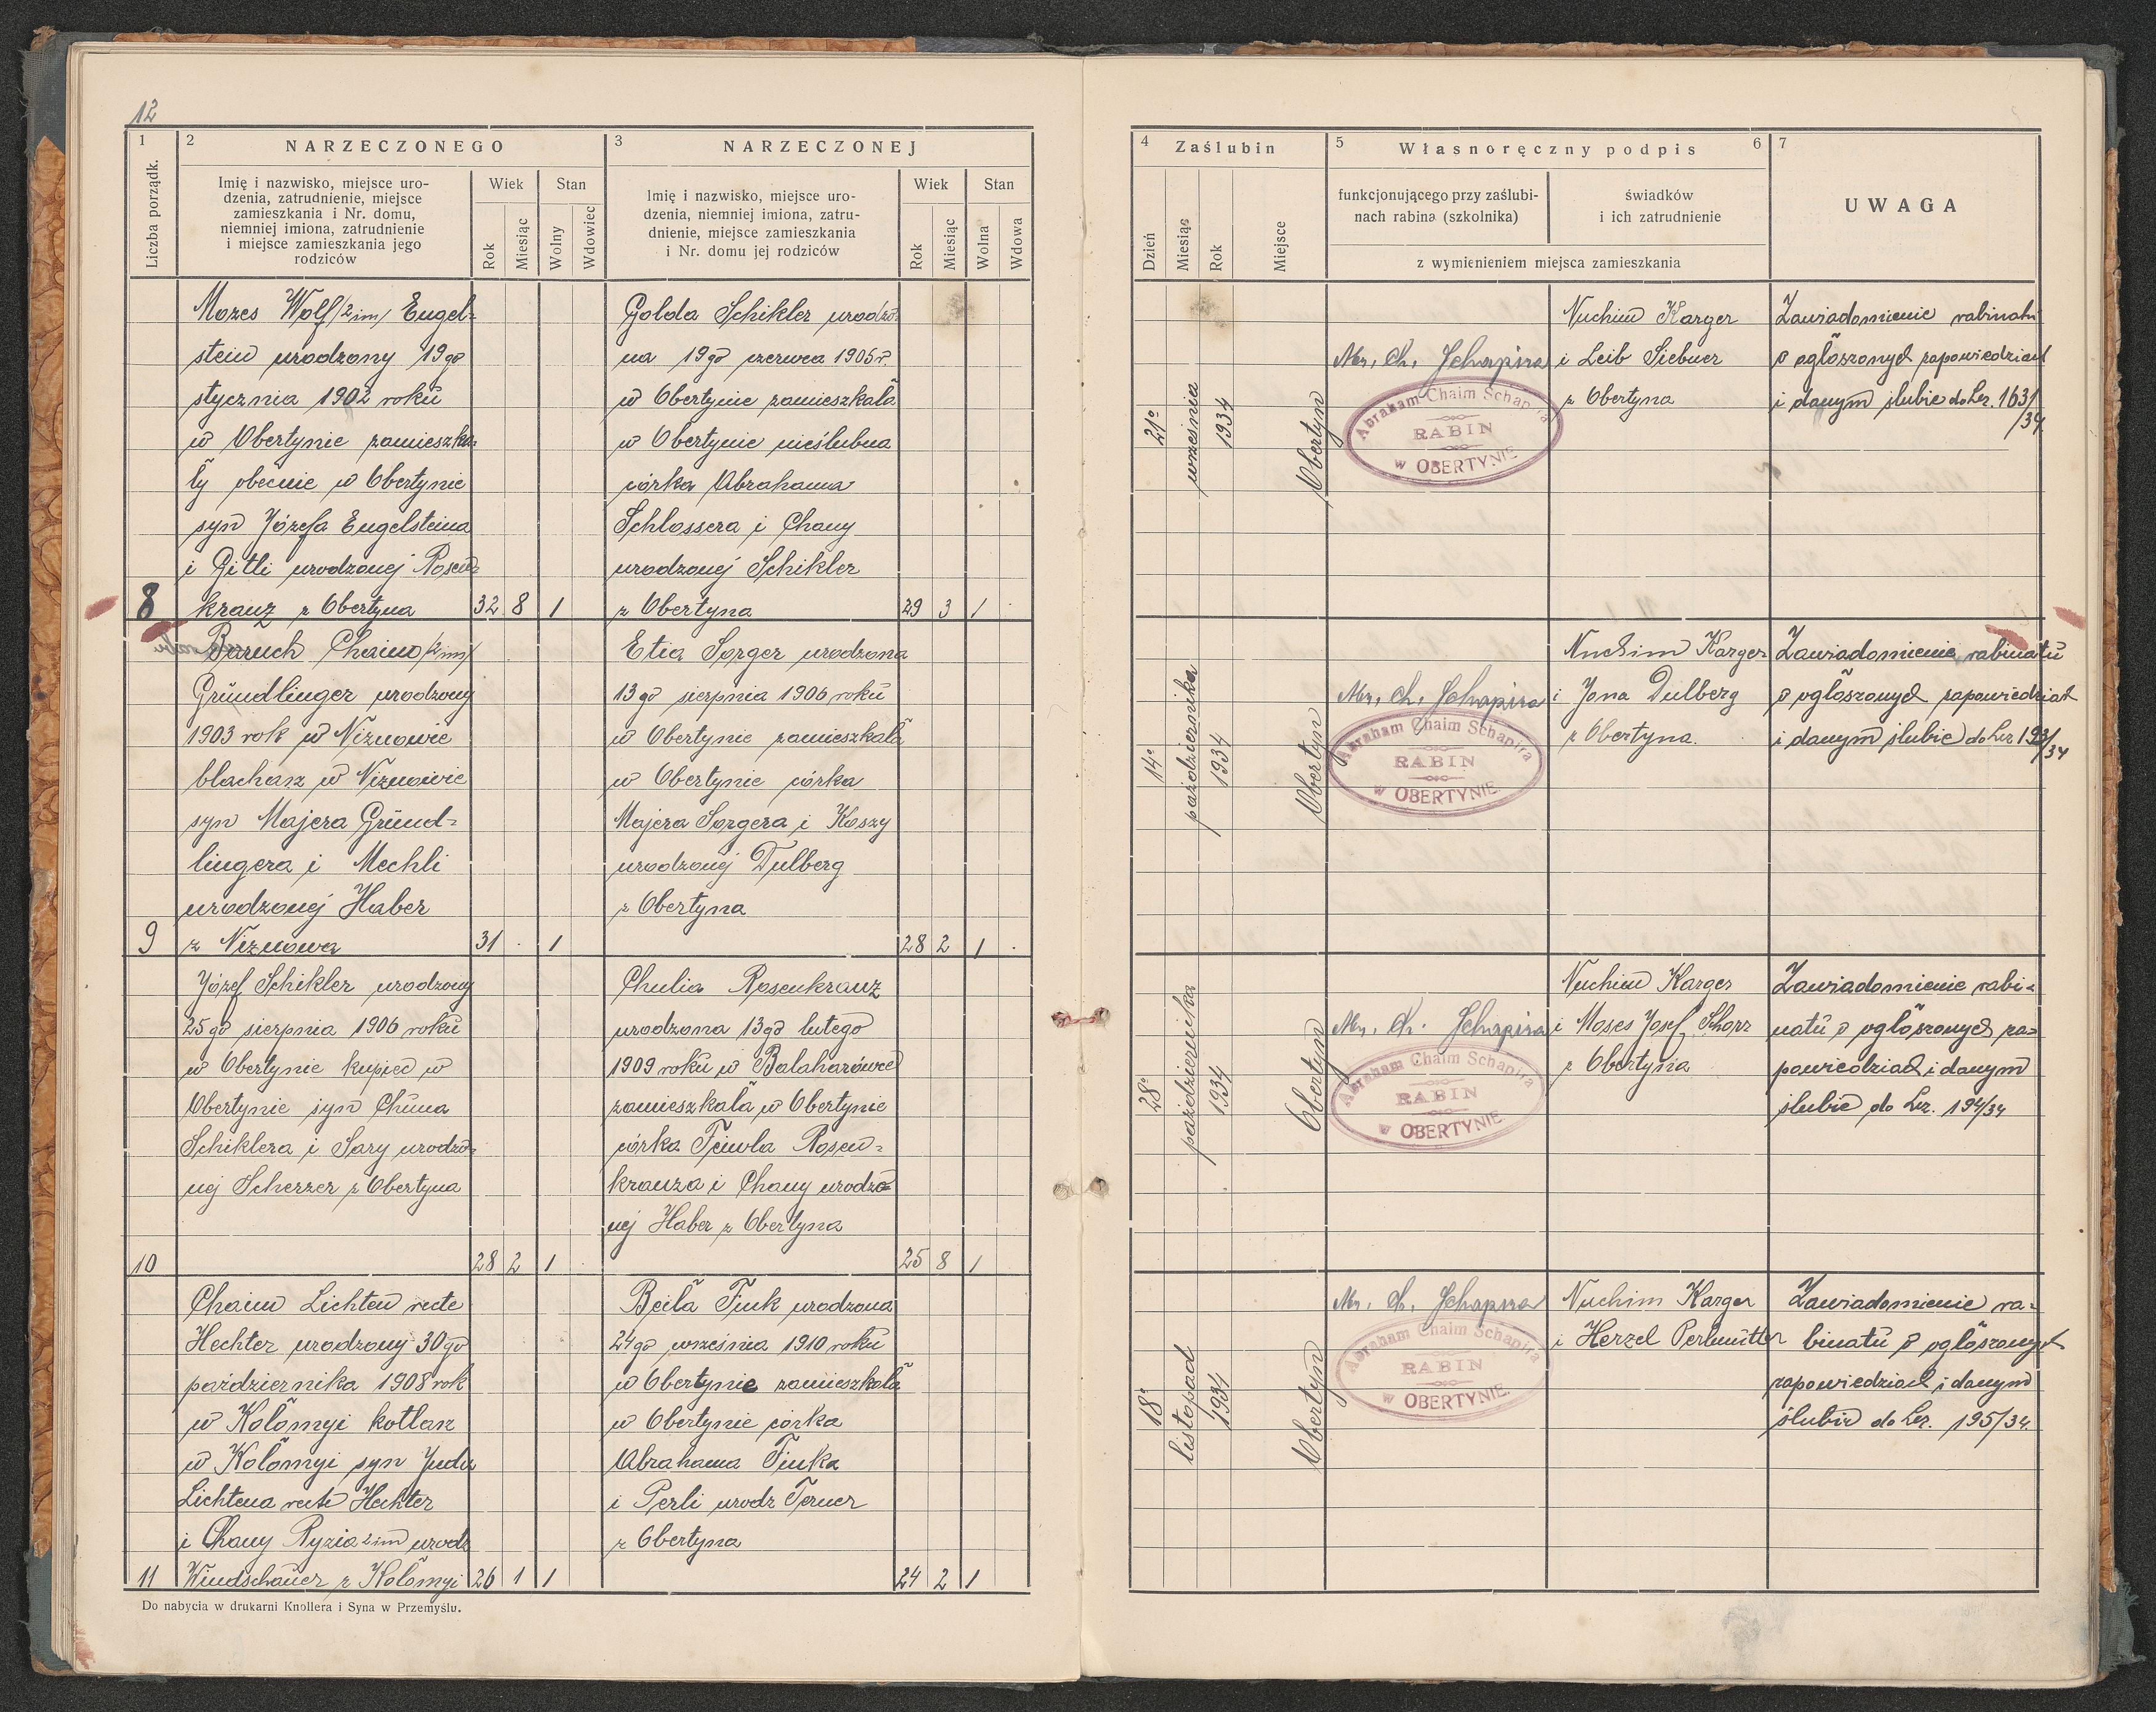 12
1
2
NARZECZONEGO
3
NARZECZONEJ
Liczba porządk.
Imię i nazwisko, miejsce uro-
dzenia, zatrudnienie, miejsce
zamieszkania i Nr. domu,
niemniej imiona, zatrudnienie
i miejsce zamieszkania jego
rodziców
Wiek
Stan
Rok
Miesiąc
Wolny
Wdowiec
Imię i nazwisko, miejsce uro-
dzenia, niemniej imiona, zatru-
dnienie, miejsce zamieszkania
i Nr. domu jej rodziców
Wiek
Stan
Rok
Miesiąc
Wolna
Wdowa
Mozes Wolf /2 im/ Engel-
stein urodzony 19go
stycznia 1902 roku
w Obertynie zamieszka-
ły obecnie w Obertynie
syn Józefa Engelsteina
i Gitli urodzonej Rosen-
8 kranz z Obertyna 32 8 1
Golda Schikler urodzo-
na 19go czerwca 1905 r.
w Obertynie zamieszkała
w Obertynie nieślubna
córka Abrahama
Schlossera i Chany
urodzonej Schikler
z Obertyna 29 3 1
Baruch Chaim /2 im/
Gründlinger urodzony
1903 rok w Niżniowie
blacharz w Niżniowie
syn Majera Gründ-
lingera i Mechli
urodzonej Haber
9 z Niżniowa 31 . 1
Etia Sorger urodzona
13go sierpnia 1906 roku
w Obertynie zamieszkała
w Obertynie córka
Majera Sorgera i Koszy
urodzonej Dulberg
z Obertyna
28 2 1 .
Józef Schikler urodzony
25go sierpnia 1906 roku
w Obertynie kupiec w
Obertynie syn Chima
Schiklera i Sary urodzo-
nej Scherzer z Obertyna
10 28 2 1
Chulia Rosenkranz
urodzona 13go lutego
1909 roku w Balaharówce
zamieszkała w Obertynie
córka Feiwla Rosen-
kranza i Chany urodzo-
nej Haber z Obertyna
25 8 1
Chaim Lichten recte
Hechter urodzony 30go
października 1908 rok
w Kołomyi kotlarz
w Kołomyi syn Judy
Lichtena recte Hechter
i Chany Ryzia 2im urodz
11 Windschauer z Kołomyi 26 1 1
Beila Fink urodzona
24go września 1910 roku
w Obertynie zamieszkała
w Obertynie córka
Abrahama Finka
i Perli urodz Ferner
z Obertyna
24 2 1
Do nabycia w drukarni Knollera i Syna w Przemyślu.
4
Zaślubin
5
Własnoręczny podpis
6
7
Dzień
Miesiąc
Rok
Miejsce
funkcjonującego przy zaślubi-
nach rabina (szkolnika)
świadków
i ich zatrudnienie
z wymienieniem miejsca zamieszkania
UWAGA
21º
września
1934
Obertyn
Abr. Ch. Schapira
Abraham Chaim Schapira
RABIN
w OBERTYNIE
Nuchim Karger
i Leib Siebner
z Obertyna
Zawiadomienie rabinatu
o ogłoszonych zapowiedziach
i danym ślubie do Lez. 1631
/34
14º
października
1934
Obertyn
Abr. Ch. Schapira
Abraham Chaim Schapira
RABIN
w OBERTYNIE
Nuchim Karger
i Jona Dulberg
z Obertyna.
Zawiadomienie rabinatu
o ogłoszonych zapowiedziach
i danym ślubie do Lez 193/
/34
28º
października
1934
Obertyn
Abr. Ch. Schapira
Abraham Chaim Schapira
RABIN
w OBERTYNIE
Nuchim Karger
i Moses Josef Schorr
z Obertyna
Zawiadomienie rabi-
natu o ogłoszonych za-
powiedziach i danym
ślubie do Lez. 194/34
18º
listopad
1934
Obertyn
Abr. Ch. Schapira
Abraham Chaim Schapira
RABIN
w OBERTYNIE
Nuchim Karger
i Herzel Perlmutter
Zawiadomienie ra-
binatu o ogłoszonych
zapowiedziach i danym
ślubie do Lez. 195/34.